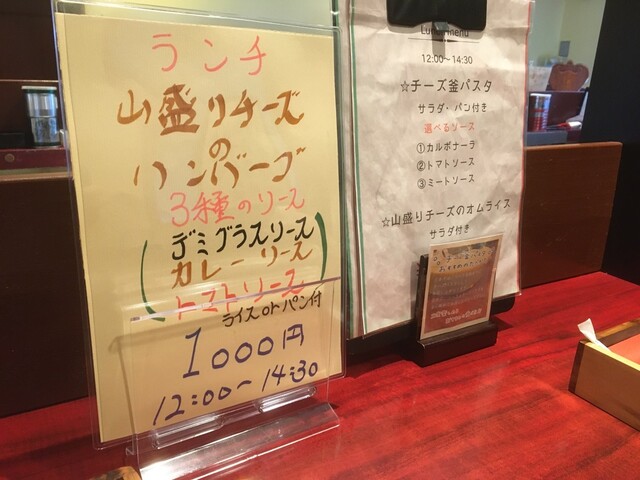 ランチ
山盛りチーズ
の
ハンバーグ
3種のソース
デミグラスソース
カレーソース
トマトソース
ライスorパン付
1000円
12:00〜14:30
Lunch menu
12:00〜14:30
☆チーズ釜パスタ
サラダ・パン付き
選べるソース
①カルボナーラ
②トマトソース
③ミートソース
☆山盛りチーズのオムライス
サラダ付き